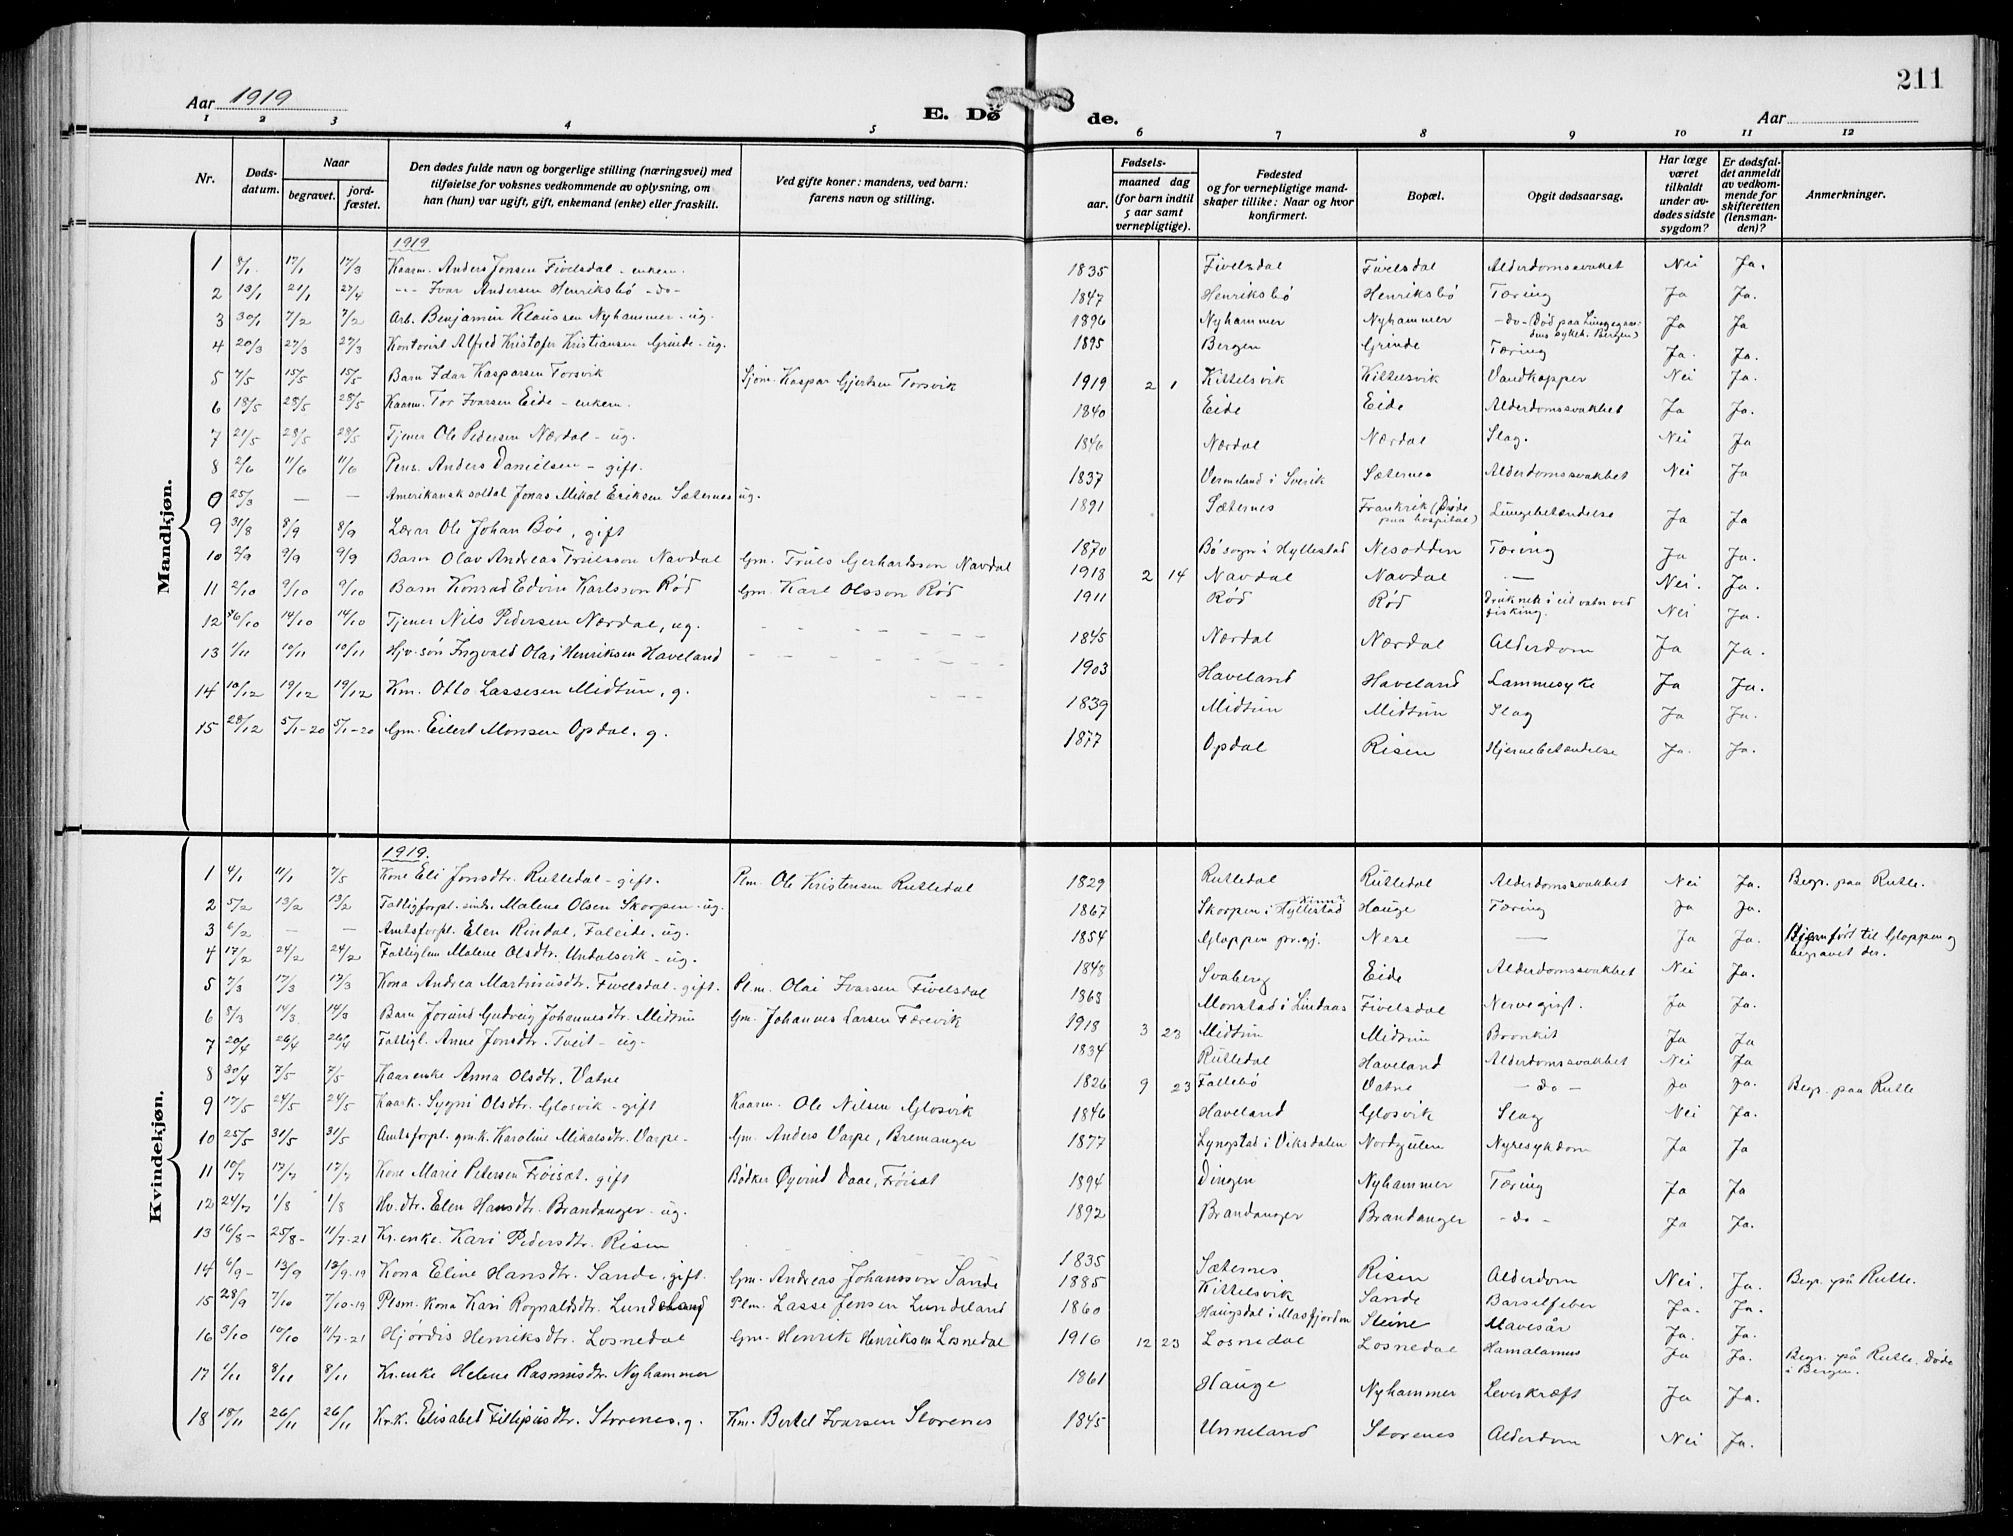 211
Aar 1919
E. Døde.
Aar
1 2 3 4 5 6 7 8 9 10 11 12
Nr.
Dødsdatum.
Naar
begravet.
jordfæstet.
Den dødes fulde navn og borgerlige stilling (næringsvei) med
tilføielse for voksnes vedkommende av oplysning, om
han (hun) var ugift, gift, enkemand (enke) eller fraskilt.
Ved gifte koner: mandens, ved barn:
farens navn og stilling.
Fødsels-
aar.
maaned dag
(for barn indtil
5 aar samt
vernepligtige).
Fødested
og for vernepligtige mand-
skaper tillike: Naar og hvor
konfirmert.
Bopæl.
Opgit dødsaarsag.
Har læge
været
tilkaldt
under av-
dødes sidste
sygdom?
Er dødsfal-
det anmeldt
av vedkom-
mende for
skifteretten
(lensman-
den)?
Anmerkninger.
Mandkjøn.
1919
1 8/1 17/1 17/3 Kaarm. Anders Jonsen Fivelsdal - enkem. 1835 Fivelsdal Fivelsdal Alderdomssvakhet Nei Ja.
2 13/1 21/1 27/4 -"- Ivar Andersen Henriksbø -do- 1847 Henriksbø Henriksbø Tæring Ja Ja.
3 30/1 7/2 7/2 Arb. Benjamin Klaussen Nyhammer - ug. 1896 Nyhammer Nyhammer -do- (Død paa Lungegaardens sykeh. Bergen) Ja Ja
4 20/3 27/3 27/3 Kontorist Alfred Kristofer Kristiansen Grinde - ug. 1895 Bergen Grinde Tæring Ja. Ja.
5 7/5 15/5 15/5 Barn Idar Kasparsen Torsvik Sjøm. Kaspar Gjertsen Torsvik 1919 2 1 Kittelsvik Kittelsvik Vandkopper Nei Ja.
6 18/5 28/5 28/5 Kaarm. Tor Ivarsen Eide - enkem. 1840 Eide Eide Alderdomssvakhet Ja Ja.
7 21/5 28/5 28/5 Tjener Ole Pedersen Nærdal - ug. 1846 Nærdal Nærdal Slag. Nei Ja
8 2/6 11/6 11/6 Pens. Anders Danielsen - gift. 1837 Vermeland i Sverik Sæternes Alderdomssvakhet Nei Ja
0 25/3 — — Amerikansk soldat Jonas Mikal Eriksen Sæternes ug. 1891 Sæternes Frankrik (Døde paa hospital) Lungebetændelse Ja Ja
9 31/8 8/9 8/9 Lærar Ole Johan Bøe, gift 1870 Bø sogn i Hyllestad Nesodden Tæring Ja Ja.
10 2/9 9/9 9/9 Barn Olav Andreas Trulsson Navdal Gm. Truls Gerhardsson Navdal 1918 2 14 Navdal Navdal — Nei. Ja.
11 2/10 9/10 9/10 Barn Konrad Edvin Karlsson Rød Gm. Karl Olsson Rød 1911 Rød Rød Druknet i eit vatn ved fisking. Nei Ja.
12 6/10 14/10 14/10 Tjener Nils Pedersen Nærdal, ug. 1845 Nærdal Nærdal Alderdom Ja Ja.
13 1/11 10/11 10/11 Hjv. søn Ingvald Olai Henriksen Haveland 1903 Haveland Haveland Lammesyke Ja Ja.
14 10/12 19/12 19/12 Km. Otto Lassesen Midtun, g. 1839 Midtun Midtun Slag Ja Ja.
15 28/12 5/1-20 5/1-20 Gm. Eilert Monsen Opdal, g. 1877 Opdal Risen Hjernebetændelse Ja. Ja.
Kvindekjøn.
1919.
1 4/1 11/1 7/5 Kone Eli Jonsdtr. Rutledal - gift. Plm. Ole Kristensen Rutledal 1829 Rutledal Rutledal Alderdomssvakhet Nei Ja. Begr. paa Rutle.
2 5/2 13/2 13/2 Fattigforpl. Malene Olsen Skorpen - ug. 1867 Skorpen i Hyllestad Hauge Tæring Ja Ja.
3 6/2 — — Amtsforpl. Elen Rindal, Faleide. ug. 1854 Gloppen pr.gj. Nese — Ja Ja. Hjemført til Gloppen og begravet der.
4 17/2 24/2 24/2 Fattiglem Malene Olsdtr. Undalsvik - ug. 1848 Svaberg Eide Alderdomssvakhet Nei Ja.
5 7/3 17/3 17/3 Kona Andrea Martinusdtr. Fivelsdal - gift. Plm. Olai Ivarsen Fivelsdal 1863 Monstad i Lindaas Fivelsdal Nervegigt. Ja Ja.
6 8/3 14/3 14/3 Barn Jorund Gudveig Johannesdtr. Midtun Gm. Johannes Larsen Færevik 1918 3 23 Midtun Midtun Bronkit Ja Ja
7 20/4 26/4 26/4 Fattigl. Anne Jonsdtr. Tveit - ug. 1834 Rutledal Haveland Alderdomssvakhet Nei Ja
8 30/4 7/5 7/5 Kaarenke Anna Olsdtr. Vatne 1826 9 23 Fallebø Vatne - do - Ja Ja. Begr. paa Rutle
9 17/5 24/5 24/5 Kaark. Sygni Olsdtr. Glosvik - gift Kaarm. Ole Nilsen Glosvik 1846 Haveland Glosvik Slag Nei Ja.
10 25/5 31/5 31/5 Amtsforpl. gm.k. Karoline Mikalsdtr. Varpe- Gm. Anders Varpe, Bremanger 1877 Lyngstad i Viksdalen Nordgulen Nyresykdom Ja Ja
11 10/7 17/7 17/7 Kone Marie Petersen Frøiset. gift Bødker Øyvind Daae, Frøiset 1894 Dingen Nyhammer Tæring Ja Ja
12 24/7 1/8 1/8 Hv. dtr. Elen Hansdtr. Brandanger - ug. 1892 Brandanger Brandanger - do - Ja Ja.
13 16/8- 25/8- 11/7-21 Kr. enke. Kari Pedersdtr. Risen 1835 Sæternes Risen Alderdom Nei. Ja. Begr. på Rutle.
14 6/9- 13/9 13/9-19 Kona Eline Hansdtr. Sande. gift. Gm. Andreas Johansson Sande 1885 Kittelsvik Sande Barselfeber Ja. Ja.
15 28/9 7/10 7/10-19 Plsm. kona Kari Rognaldsdtr. Lundeland Plm. Lasse Jensen Lundeland 1860 Haugsdal i Masfjorden Steine Mavesår Ja. Ja.
16 3/10 10/10 11/7-21 Hjørdis Henriksdtr. Losnedal Gm. Henrik Henriksen Losnedal 1916 12 23 Losnedal Losnedal Ja Ja.
17 1/11 8/11 8/11 Kr. enke Helene Rasmusdtr. Nyhammer 1861 Hauge Nyhammer Leverkræft Ja Ja. Begr. på Rutle. Døde i Bergen.
18 18/11 26/11 26/11 Kr.k. Elisabet Fillipusdtr. Storenes, g. Km. Bertel Ivarsen Storenes 1845 Unneland Storenes Alderdom Nei Ja.